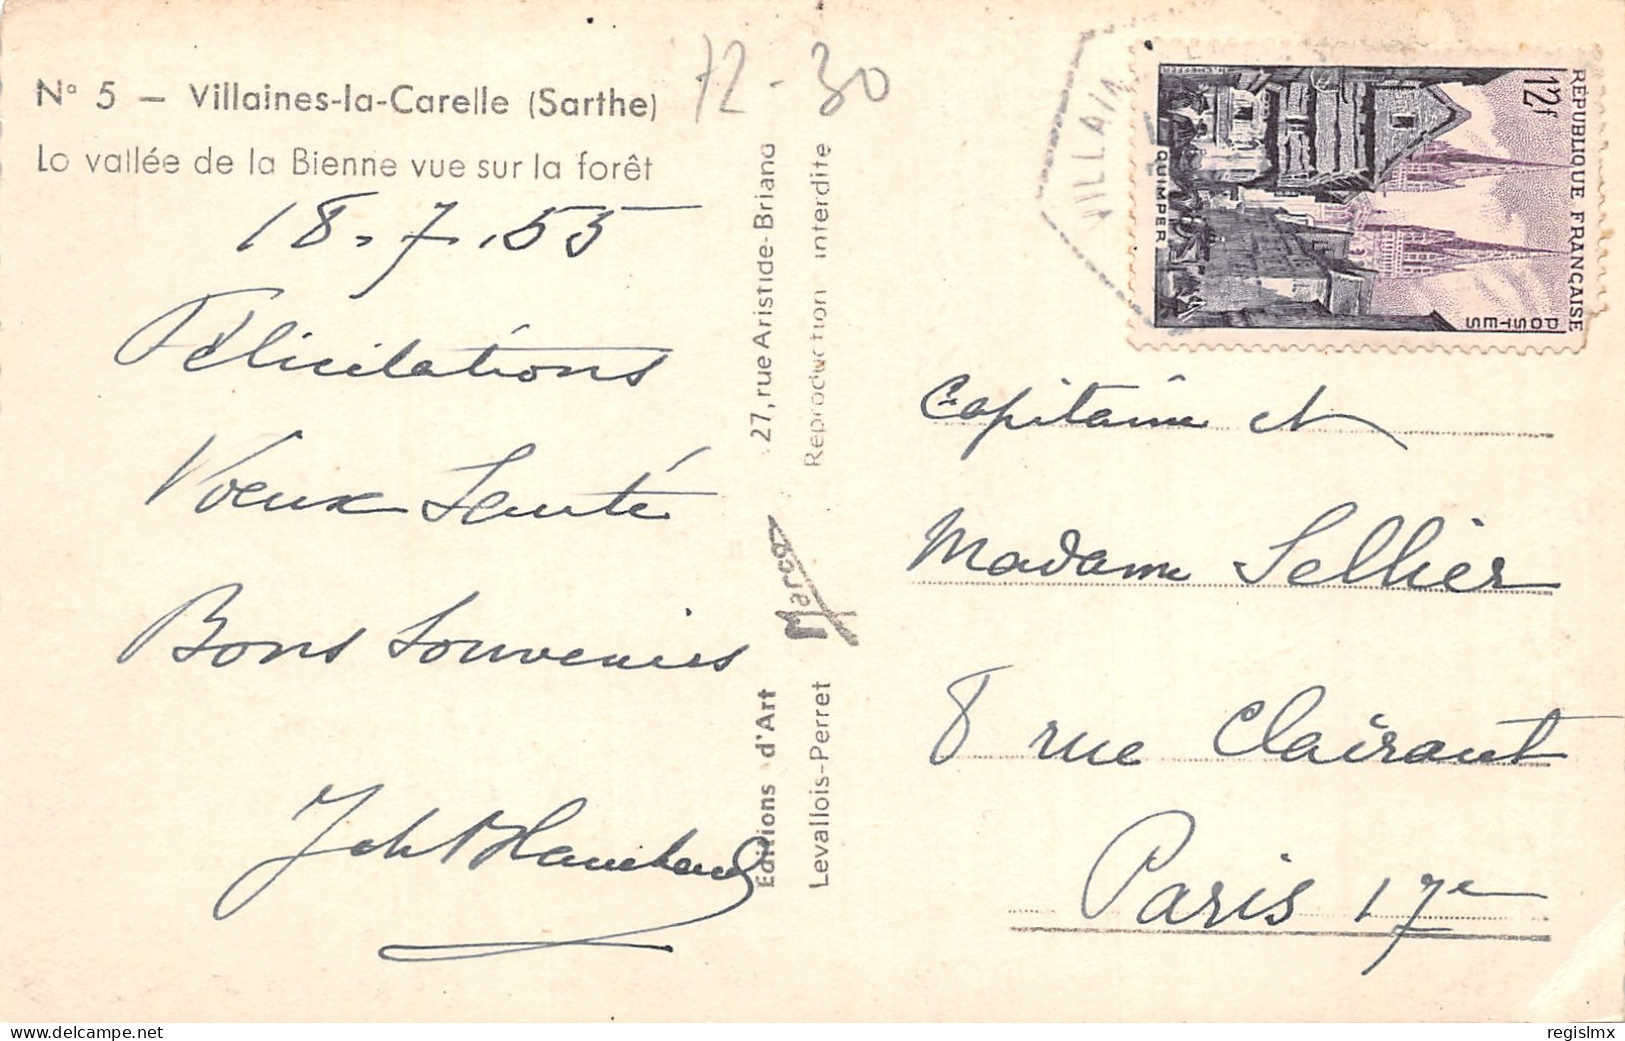 N° 5 – Villaines-la-Carelle (Sarthe)
La vallée de la Bienne vue sur la forêt
72-30
18.7.55
Félicitations
Voeux Santé
Bons Souvenirs
Editions d'Art Marco 27, rue Aristide-Briand
Levallois-Perret Reproduction interdite
VILLAI
RÉPUBLIQUE FRANÇAISE
12f
POSTES
QUIMPER
Capitaine et
Madame Sellier
8 rue Clairaut
Paris 17e
regislmx